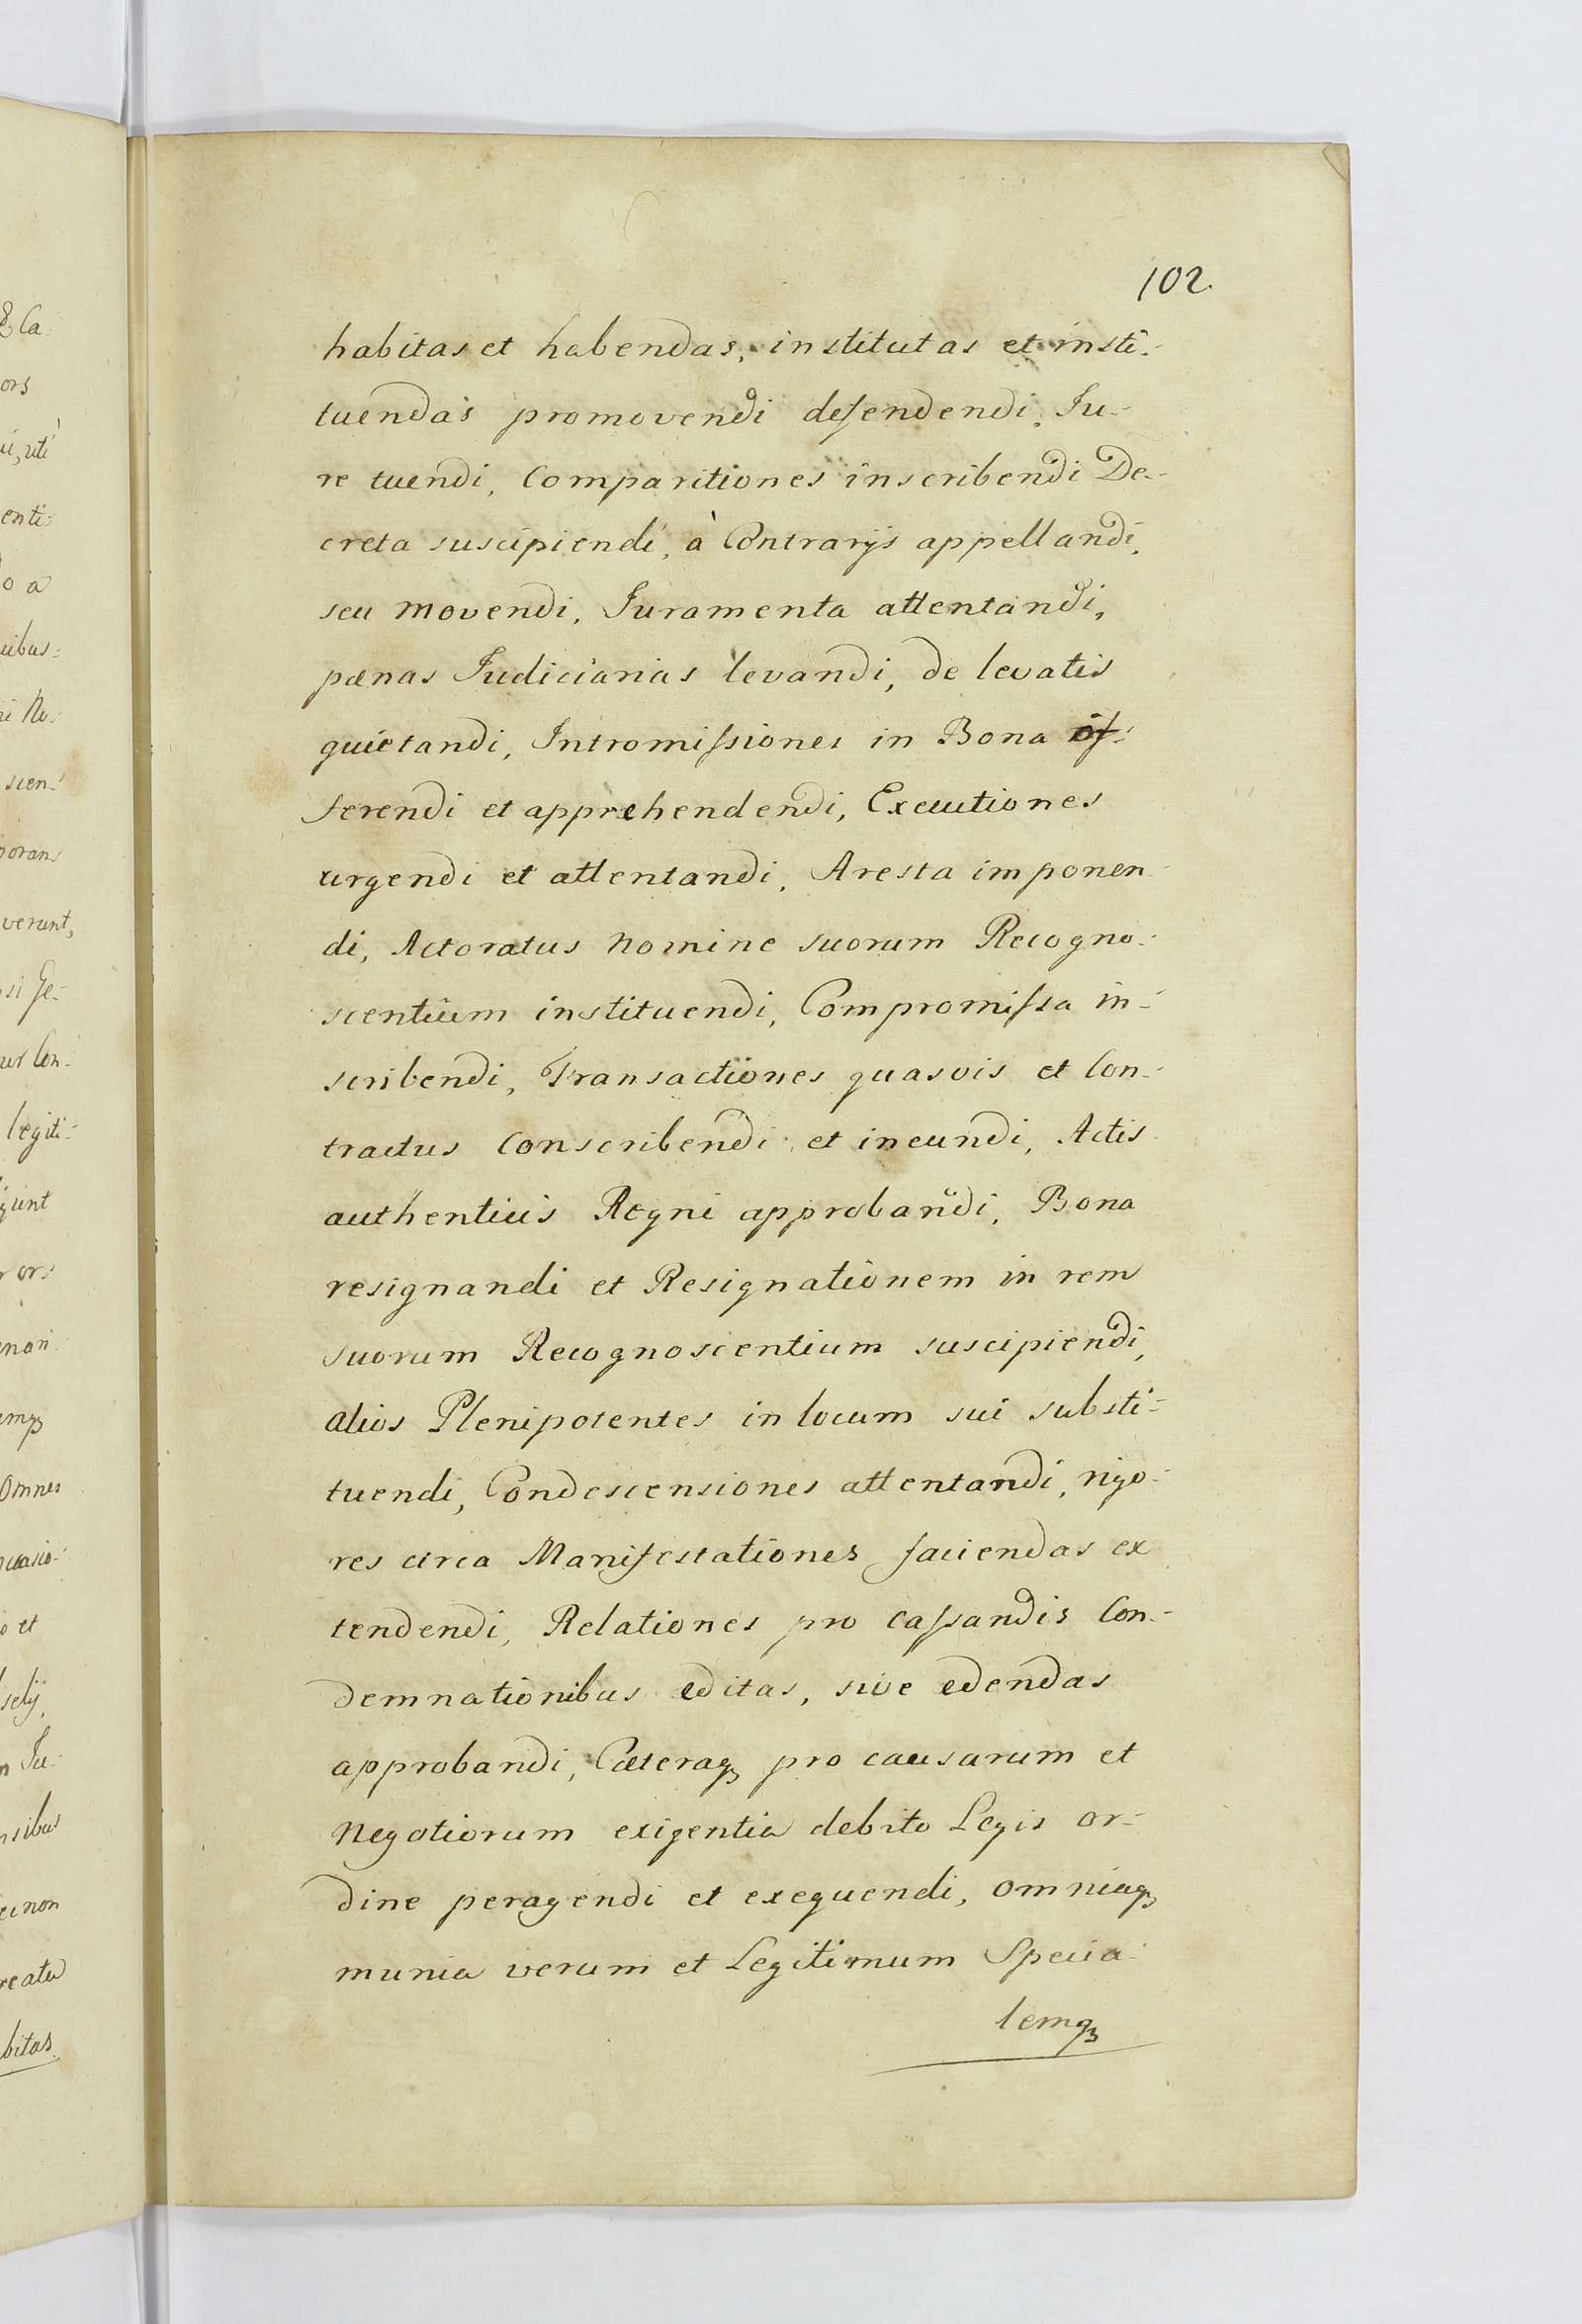 102.
habitas et habendas, institutas et insti-
tuendas promovendi defendendi, Ju-
re tuendi, Comparitiones inscribendi De-
creta suscipiendi, à Contrarijs appellandi,
seu movendi, Juramenta attentandi,
pænas Judiciarias levandi, de levatis
quietandi, Intromissiones in Bona of-
ferendi et apprehendendi, Executiones
urgendi et attentandi, Aresta imponen-
di, Actoratus nomine suorum Recogno-
scentium instituendi, Compromissa in-
scribendi, Transactiones quasvis et Con-
tractus conscribendi et ineundi, Actis
authenticis Regni approbandi, Bona
resignandi et Resignationem in rem
suorum Recognoscentium suscipiendi,
alios Plenipotentes in locum sui substi-
tuendi, Condescensiones attentandi, rigo-
res circa Manifestationes faciendas ex
tendendi, Relationes pro cassandis Con-
demnationibus editas, sive edendas
approbandi, Cæteraqꝫ pro causarum et
negotiorum exigentia debito Legis or-
dine peragendi et exequendi, omniaqꝫ
munia verum et Legitimum Specia-
lemqꝫ